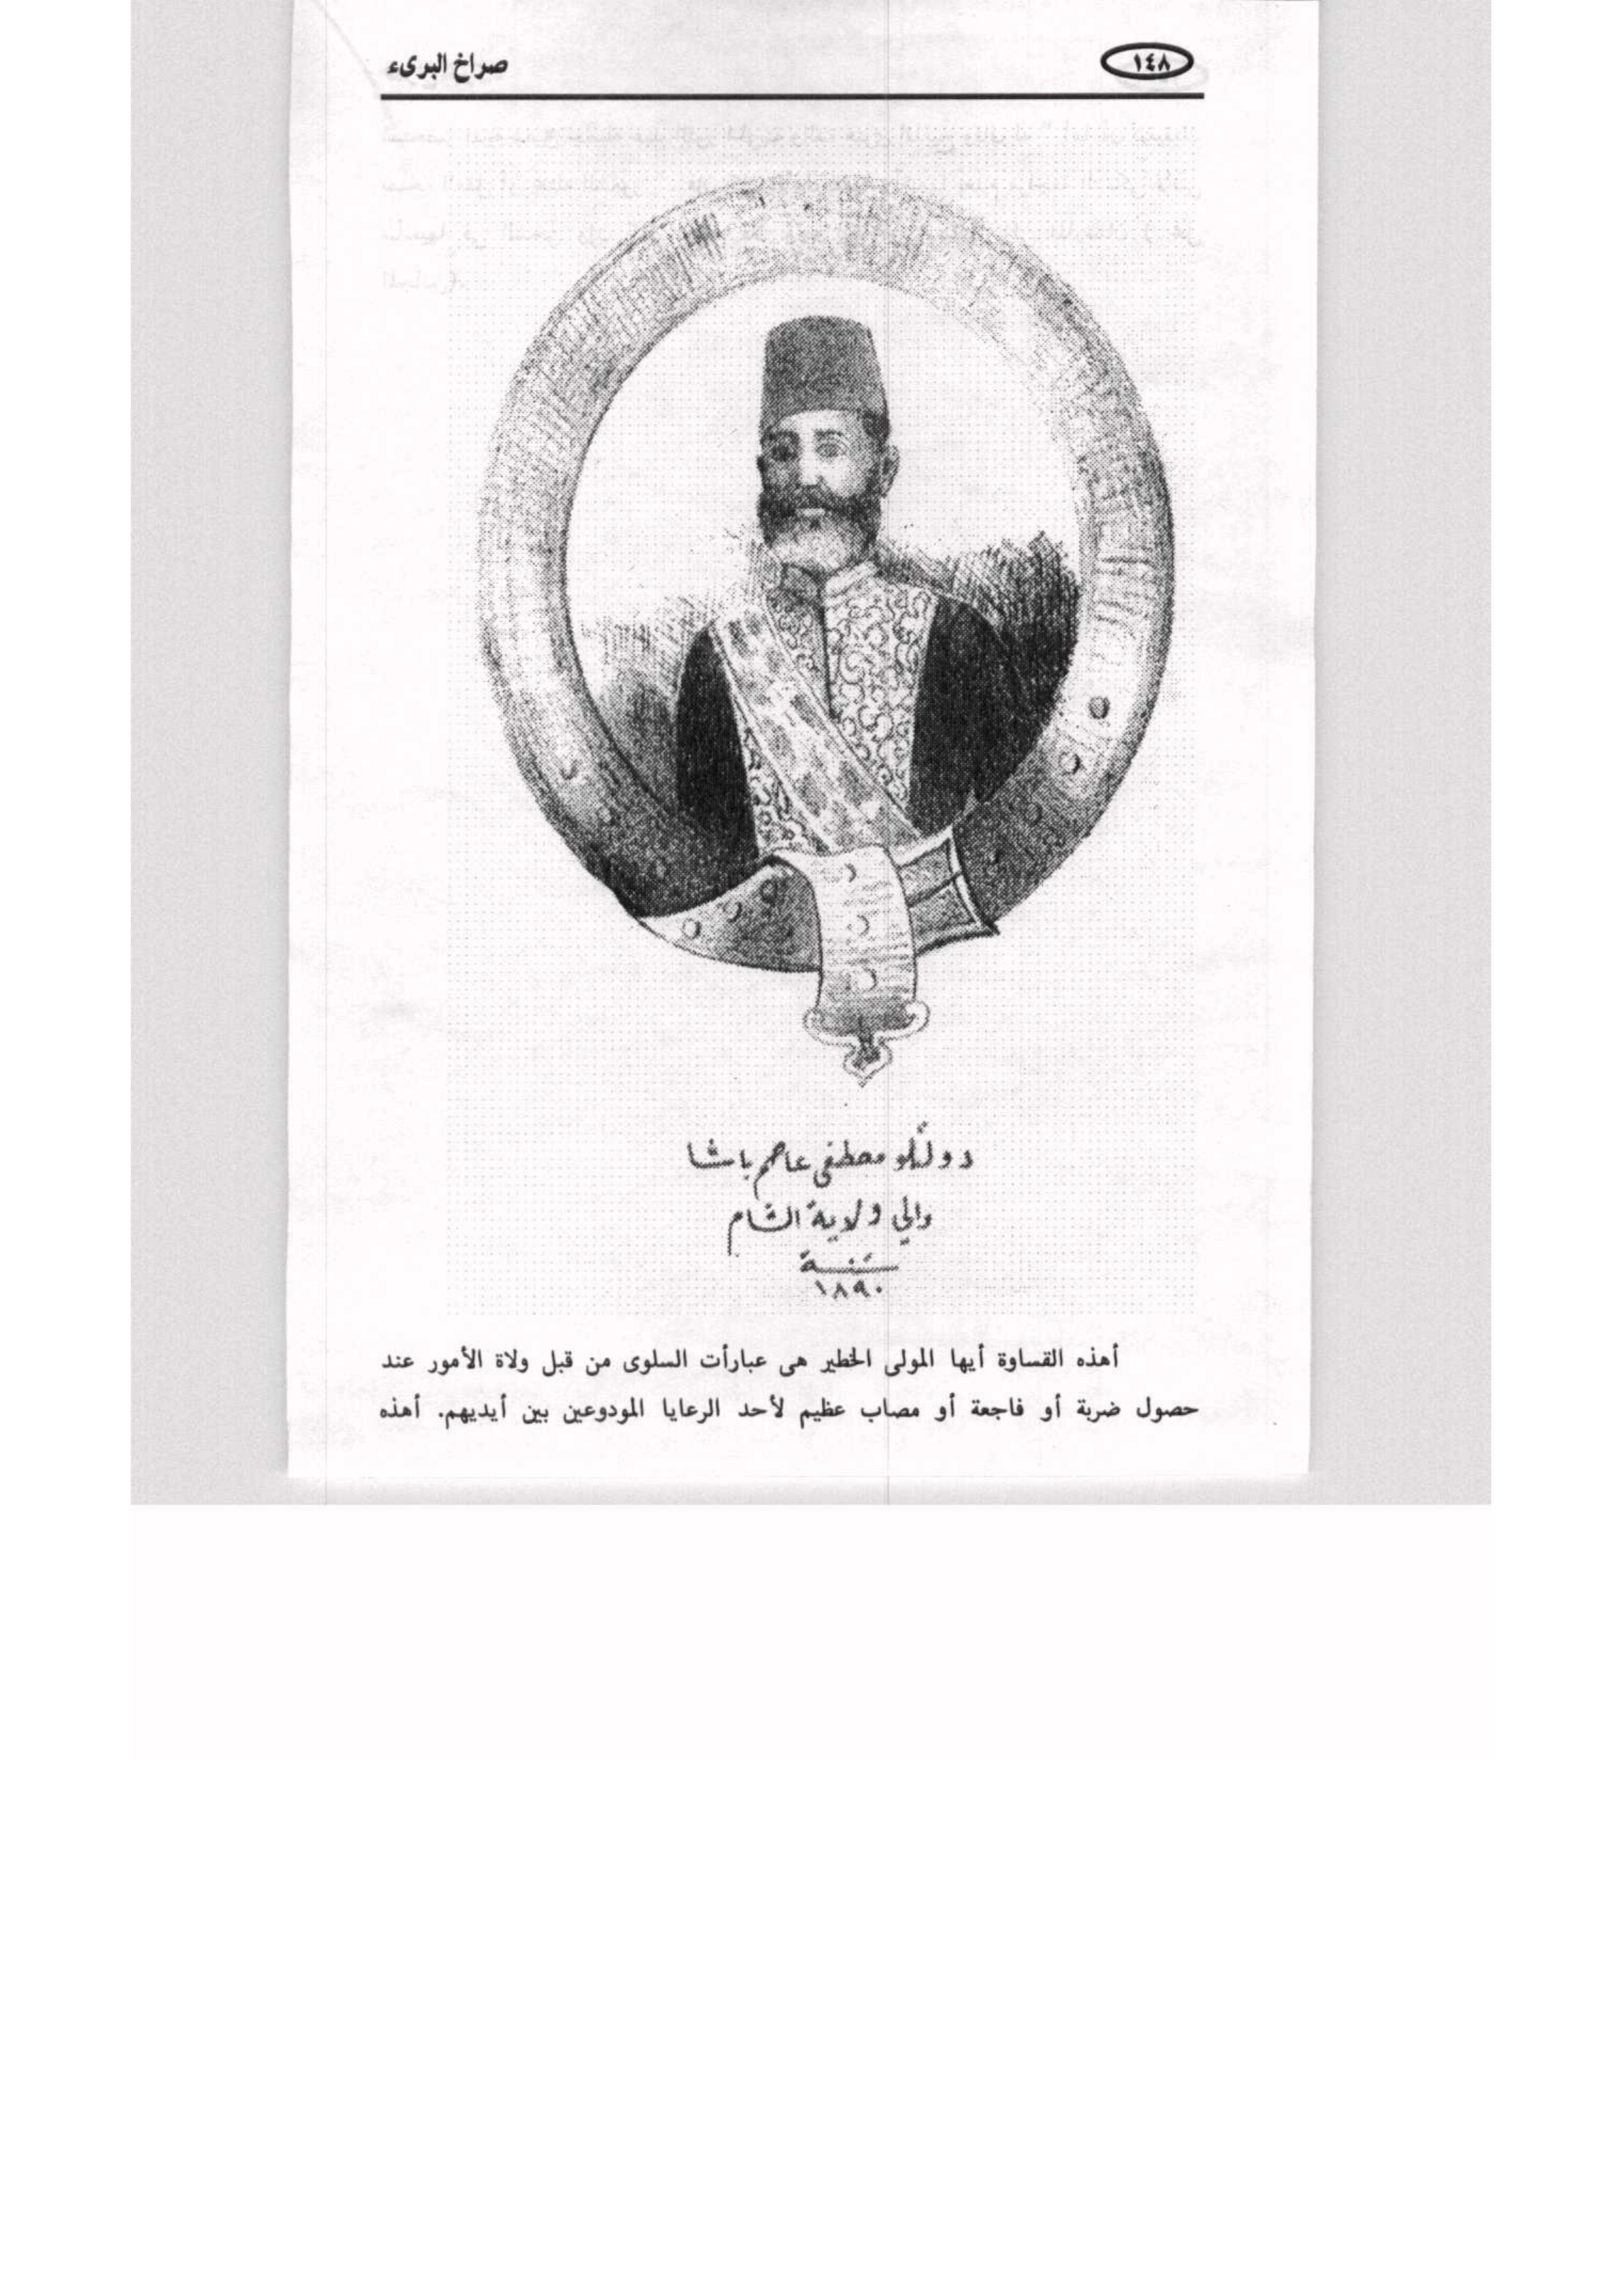 ١٤٨
صراخ البرىء
دولتلو مصطفى عاصم باشا
والي ولاية الشام
سنة
١٨٩٠
أهذه القساوة أيها المولى الخطير هى عبارأت السلوى من قبل ولاة الأمور عند
حصول ضربة أو فاجعة أو مصاب عظيم لأحد الرعايا المودوعين بين أيديهم. أهذه